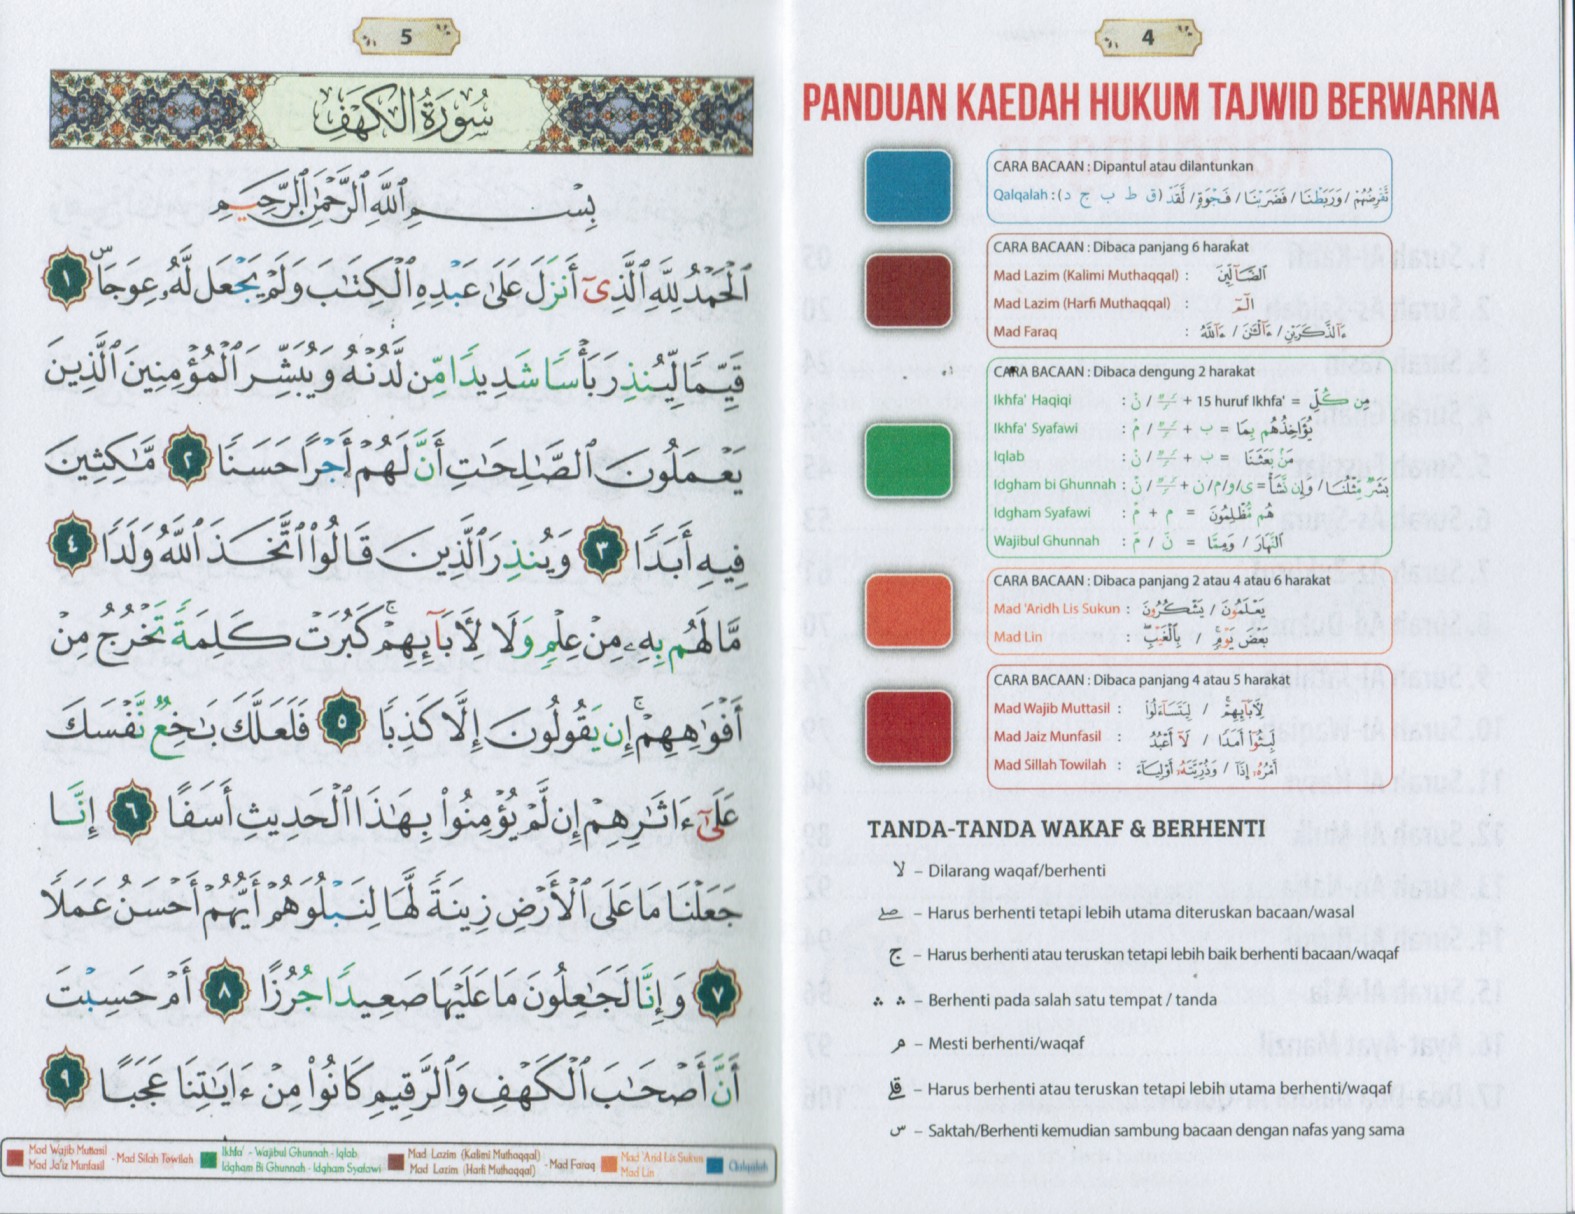 4
PANDUAN KAEDAH HUKUM TAJWID BERWARNA
CARA BACAAN : Dipantul atau dilantunkan
Qalqalah : (ق ط ب ج د) تَّقْرِضُهُمْ / وَرَبَطْنَا / فَضَرَبْنَا / فَجْوَةٍ / لَّقَدْ
CARA BACAAN : Dibaca panjang 6 harakat
Mad Lazim (Kalimi Muthaqqal) : ٱلضَّآلِّينَ
Mad Lazim (Harfi Muthaqqal) : الٓمٓ
Mad Faraq : ءَآلذَّكَرَيْنِ / ءَآلْـَٰٔنَ / ءَآللَّهُ
CARA BACAAN : Dibaca dengung 2 harakat
Ikhfa' Haqiqi : نْ / ـًـٍـٌ + 15 huruf Ikhfa' = مِن كُلِّ
Ikhfa' Syafawi : مْ / ـًـٍـٌ + ب = يُؤَاخِذُهُم بِمَا
Iqlab : نْ / ـًـٍـٌ + ب = مَنۢ بَعَثَنَا
Idgham bi Ghunnah : نْ / ـًـٍـٌ + ى/و/م/ن = بَشَرٌ مِّثْلُنَا / وَإِن نَّشَأْ
Idgham Syafawi : مْ + م =
Wajibul Ghunnah : مّ / نّ = وَمِمَّا / ٱلنَّهَارَ
CARA BACAAN : Dibaca panjang 2 atau 4 atau 6 harakat
Mad 'Aridh Lis Sukun : يَعْلَمُونَ / يَشْكُرُونَ
Mad Lin : بَعْضَ يَوْمٍ / بِٱلْغَيْبِ
CARA BACAAN : Dibaca panjang 4 atau 5 harakat
Mad Wajib Muttasil : لِأَبَآئِهِمْ / لِيَتَسَآءَلُوا۟
Mad Jaiz Munfasil : لَبِثُوٓا۟ أَمَدًا / لَآ أَعْبُدُ
Mad Sillah Towilah : أَمْرُهُۥٓ إِذَآ / وَذُرِّيَّتَهُۥٓ أَوْلِيَآءَ
TANDA-TANDA WAKAF & BERHENTI
لا – Dilarang waqaf/berhenti
صلے – Harus berhenti tetapi lebih utama diteruskan bacaan/wasal
ج – Harus berhenti atau teruskan tetapi lebih baik berhenti bacaan/waqaf
∴ ∴ – Berhenti pada salah satu tempat / tanda
م – Mesti berhenti/waqaf
قلے – Harus berhenti atau teruskan tetapi lebih utama berhenti/waqaf
س – Saktah/Berhenti kemudian sambung bacaan dengan nafas yang sama
5
سُورَةُ الكَهْفِ
بِسْمِ ٱللَّهِ ٱلرَّحْمَٰنِ ٱلرَّحِيمِ
ٱلْحَمْدُ لِلَّهِ ٱلَّذِىٓ أَنزَلَ عَلَىٰ عَبْدِهِ ٱلْكِتَٰبَ وَلَمْ يَجْعَل لَّهُۥ عِوَجَاۜ ١
قَيِّمًا لِّيُنذِرَ بَأْسًا شَدِيدًا مِّن لَّدُنْهُ وَيُبَشِّرَ ٱلْمُؤْمِنِينَ ٱلَّذِينَ
يَعْمَلُونَ ٱلصَّٰلِحَٰتِ أَنَّ لَهُمْ أَجْرًا حَسَنًا ٢ مَّٰكِثِينَ
فِيهِ أَبَدًا ٣ وَيُنذِرَ ٱلَّذِينَ قَالُوا۟ ٱتَّخَذَ ٱللَّهُ وَلَدًا ٤
مَّا لَهُم بِهِۦ مِنْ عِلْمٍ وَلَا لِأَبَآئِهِمْ ۚ كَبُرَتْ كَلِمَةً تَخْرُجُ مِنْ
أَفْوَٰهِهِمْ ۚ إِن يَقُولُونَ إِلَّا كَذِبًا ٥ فَلَعَلَّكَ بَٰخِعٌ نَّفْسَكَ
عَلَىٰٓ ءَاثَٰرِهِمْ إِن لَّمْ يُؤْمِنُوا۟ بِهَٰذَا ٱلْحَدِيثِ أَسَفًا ٦ إِنَّا
جَعَلْنَا مَا عَلَى ٱلْأَرْضِ زِينَةً لَّهَا لِنَبْلُوَهُمْ أَيُّهُمْ أَحْسَنُ عَمَلًا
٧ وَإِنَّا لَجَٰعِلُونَ مَا عَلَيْهَا صَعِيدًا جُرُزًا ٨ أَمْ حَسِبْتَ
أَنَّ أَصْحَٰبَ ٱلْكَهْفِ وَٱلرَّقِيمِ كَانُوا۟ مِنْ ءَايَٰتِنَا عَجَبًا ٩
Mad Wajib Muttasil
Mad Ja'iz Munfasil
- Mad Silah Towilah
Ikhfa' - Wajibul Ghunnah - Iqlab
Idgham Bi Ghunnah - Idgham Syafawi
Mad Lazim (Kalimi Muthaqqal)
Mad Lazim (Harfi Muthaqqal)
- Mad Faraq
Mad 'Arid Lis Sukun
Mad Lin
Qalqalah